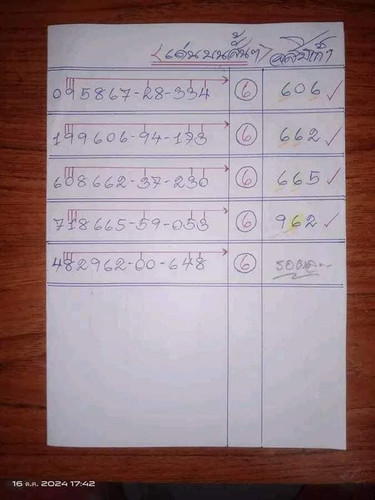 <เด่นบนสั้นๆ>
095867-28-334 6 606 ✓
199606-94-173 6 662 ✓
608662-37-230 6 665 ✓
718665-59-053 6 962 ✓
482962-00-648 6 รอผล
16 ต.ค. 2024 17:42